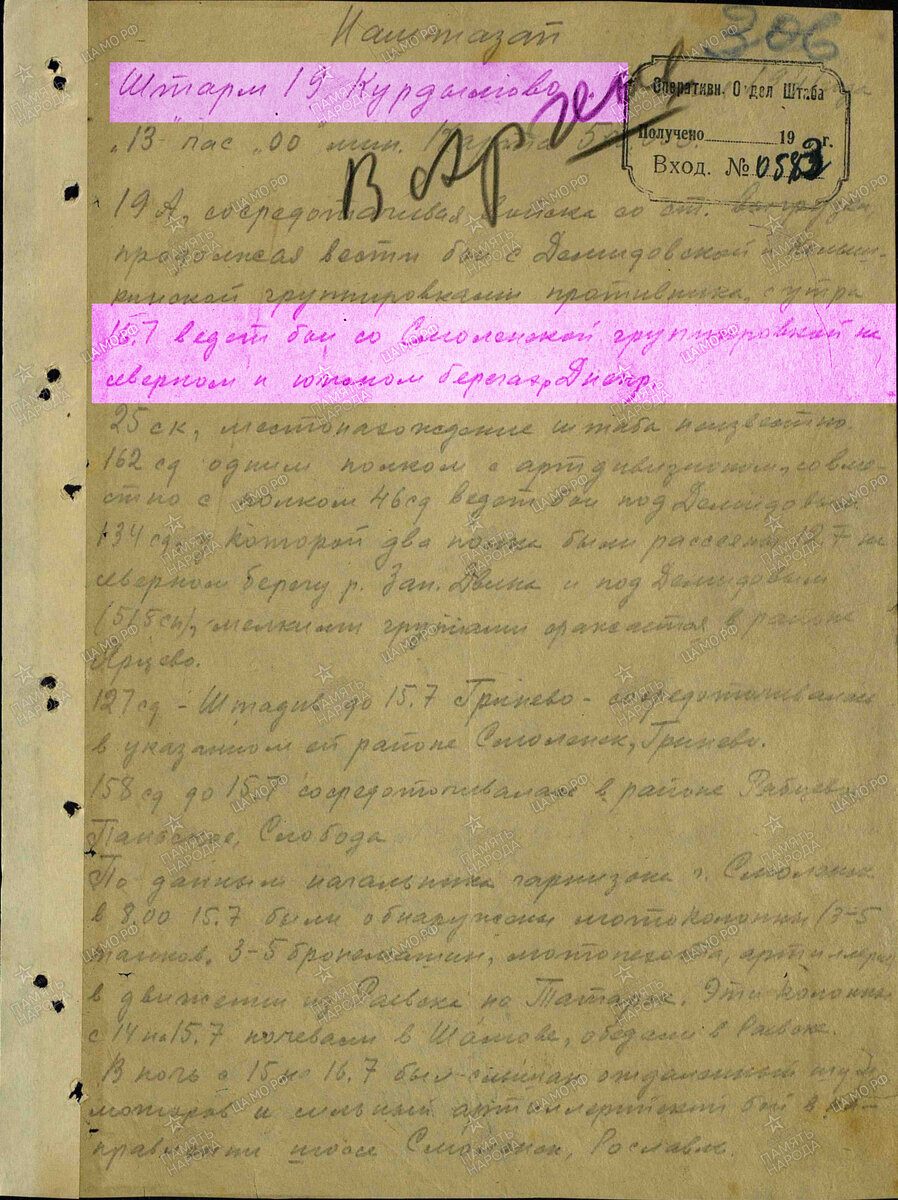 Наштазап
306
Штарм 19 Курдымово
Оперативн. Отдел Штаба
Получено 19 г.
Вход. № 0583
"13" час "00" мин.
В Арх
19 А, сосредотачивая войска со ст. выгрузки,
продолжая вести бои с Демидовской и
группировками противника, с утра
15.7 ведет бои со Смоленской группировкой на
северном и южном берегах р. Днепр.
25 ск, местонахождение штаба неизвестно.
162 сд одним полком с артдивизионом, совме-
стно с полком 46 сд ведет бои под Демидовым
134 сд, у которой два полка были рассеяны 12.7 на
северном берегу р. Зап. Двина и под Демидовым
(515 сп), мелкими группами сражается в районе
Ярцево.
127 сд - Штадив до 15.7 Гринево - сосредотачивалась
в указанном ей районе Смоленск, Гринево.
158 сд до 15.7 сосредотачивалась в районе Рябцево
Слобода
По данным начальника гарнизона г. Смоленск
в 8.00 15.7 были обнаружены мотоколонны (3-5
танков, 3-5 бронемашин, мотопехота, артиллерия)
в движении из Раевка на Татарск. Эти колонны
с 14 на 15.7 ночевали в Шатове, обедали в Раевке.
В ночь с 15 на 16.7 был слышан отдаленный шум
моторов и сильный артиллерийский бой в на-
правлении шоссе Смоленск, Рославль.